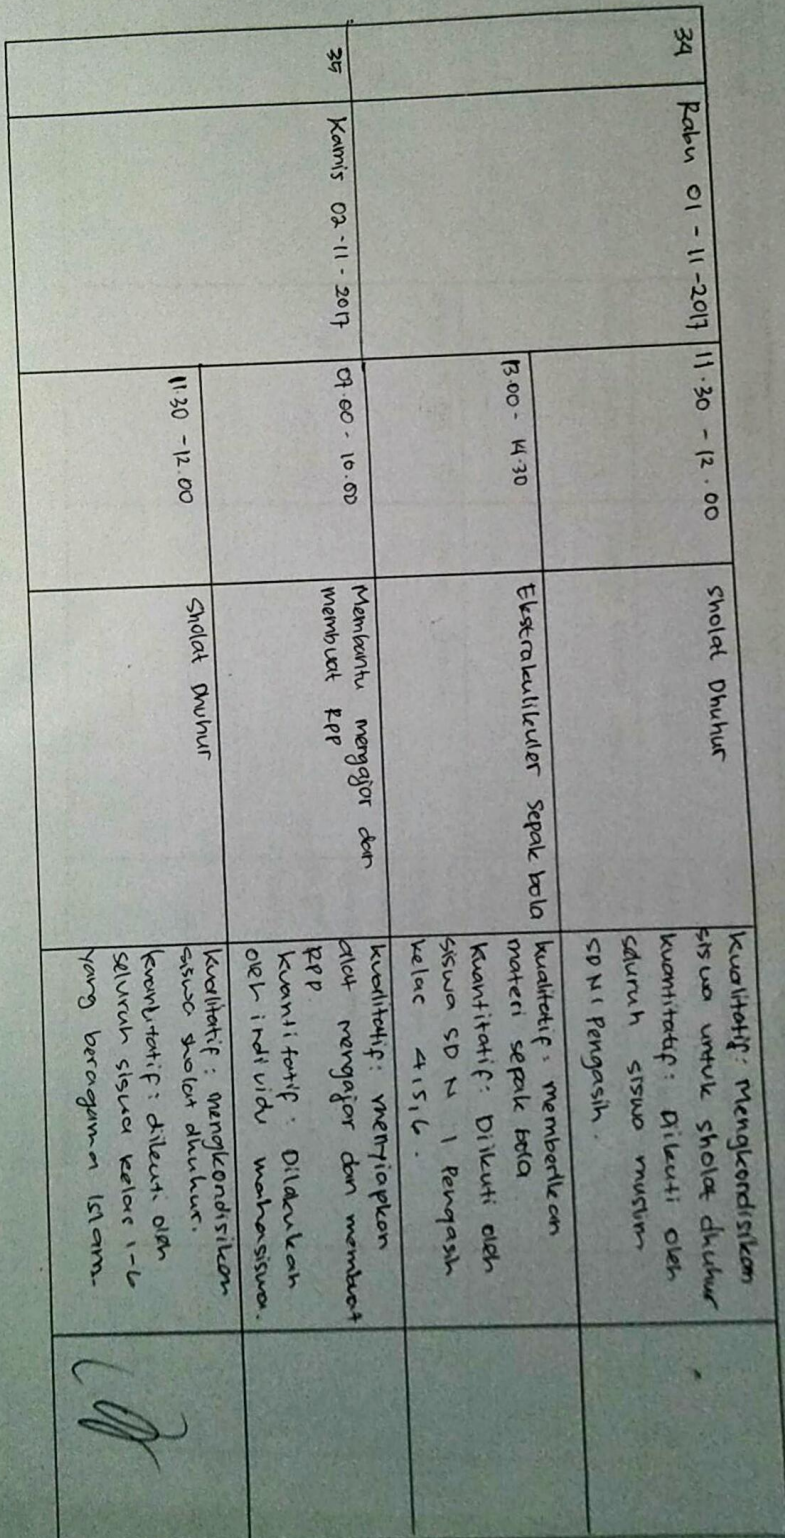 34
Rabu 01 - 11 - 2017
11.30 - 12.00
Sholat Dhuhur
Kualitatif: Mengkondisikan
siswa untuk sholat dhuhur
kuantitatif: Diikuti oleh
seluruh siswa muslim
SD N 1 Pengasih.
13.00 - 14.30
Ekstrakulikuler Sepak bola
kualitatif: memberikan
materi sepak bola
kuantitatif: Diikuti oleh
siswa SD N 1 Pengasih
kelas 4,5,6.
35
Kamis 02 - 11 - 2017
07.00 - 10.00
Membantu mengajar dan
membuat RPP
kualitatif: menyiapkan
alat mengajar dan membuat
RPP.
kuantitatif: Dilakukan
oleh individu mahasiswa.
11.30 - 12.00
Sholat Dhuhur
Kualitatif: mengkondisikan
siswa sholat dhuhur.
kuantitatif: diikuti oleh
seluruh siswa kelas 1-6
yang beragama Islam.